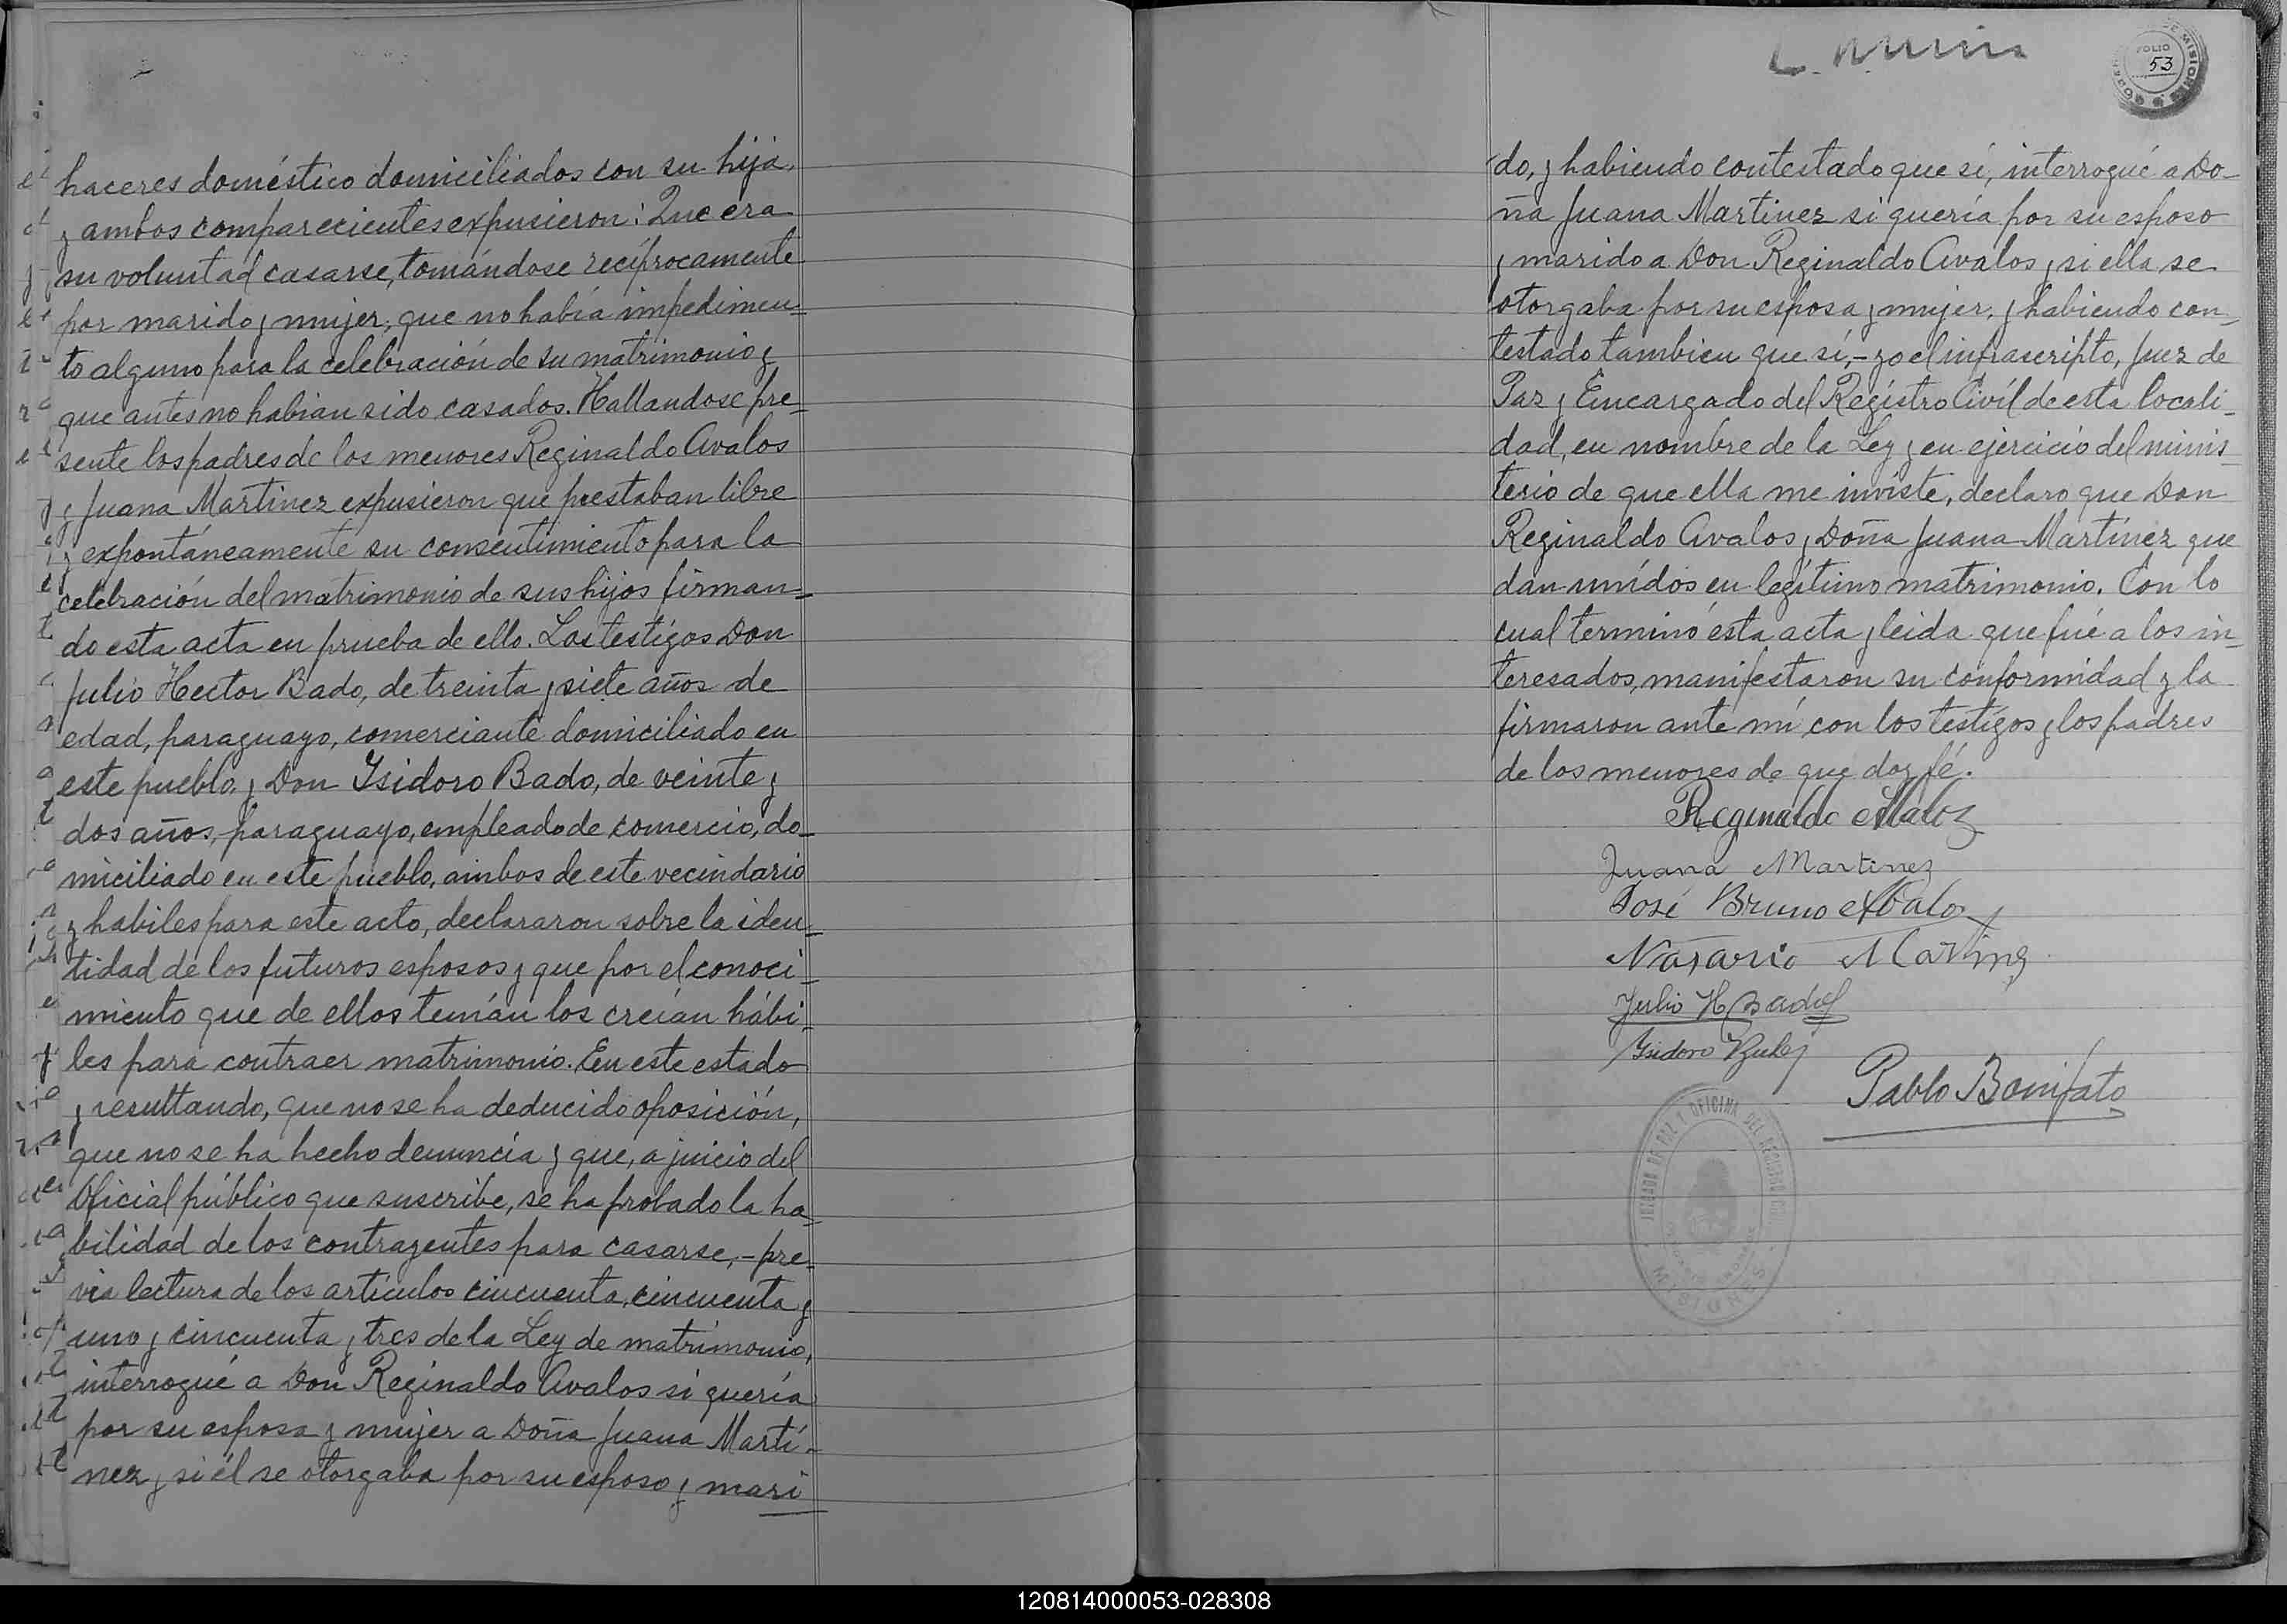 haceres doméstico domiciliados con su hija,
y ambos comparecientes expusieron: Que era
su voluntad casarse, tomándose recíprocamente
por marido y mujer; que no había impedimen-
to alguno para la celebración de su matrimonio y
que antes no habian sido casados. Hallandose pre-
sente los padres de los menores Reginaldo Avalos
y Juana Martinez expusieron que prestaban libre
y expontáneamente su consentimiento para la
celebración del matrimonio de sus hijos firman-
do esta acta en prueba de ello. Los testigos Don
Julio Hector Bado, de treinta y siete años de
edad, paraguayo, comerciante domiciliado en
este pueblo, y Don Ysidoro Bado, de veinte y
dos años, paraguayo, empleado de comercio, do-
miciliado en este pueblo, ambos de este vecindario
y habiles para este acto, declararon sobre la iden-
tidad de los futuros esposos y que por el conoci-
miento que de ellos tenían los creían hábi-
les para contraer matrimonio. En este estado
y resultando, que no se ha deducido oposición,
que no se ha hecho denuncia y que, a juicio del
Oficial público que suscribe, se ha probado la ha-
bilidad de los contrayentes para casarse, - pre-
via lectura de los artículos cincuenta, cincuenta y
uno y cincuenta y tres de la Ley de matrimonio,
interrogué a Don Reginaldo Avalos si quería
por su esposa y mujer a Doña Juana Martí-
nez y si él se otorgaba por su esposo y mari
FOLIO
53
do, y habiendo contestado que sí, interrogué a Do-
ña Juana Martinez si quería por su esposo
y marido a Don Reginaldo Avalos y si ella se
otorgaba por su esposa y mujer, y habiendo con-
testado tambien que sí, - yo el infrascripto, Juez de
Paz y Encargado del Registro Civíl de esta locali-
dad, en nombre de la Ley y en ejercicio del minis-
terio de que ella me inviste, declaro que Don
Reginaldo Avalos y Doña Juana Martínez que
dan unidos en legítimo matrimonio. Con lo
cual terminó esta acta y leida que fué a los in-
teresados, manifestaron su conformidad y la
firmaron ante mí con los testigos y los padres
de los menores de que doy fé.
Reginaldo
Juana Martinez
José Bruno
Julio H Bado
Ysidoro
Pablo Bonifato
JUZGADO DE PAZ Y OFICINA DEL REGISTRO CIVIL
MISIONES
120814000053-028308